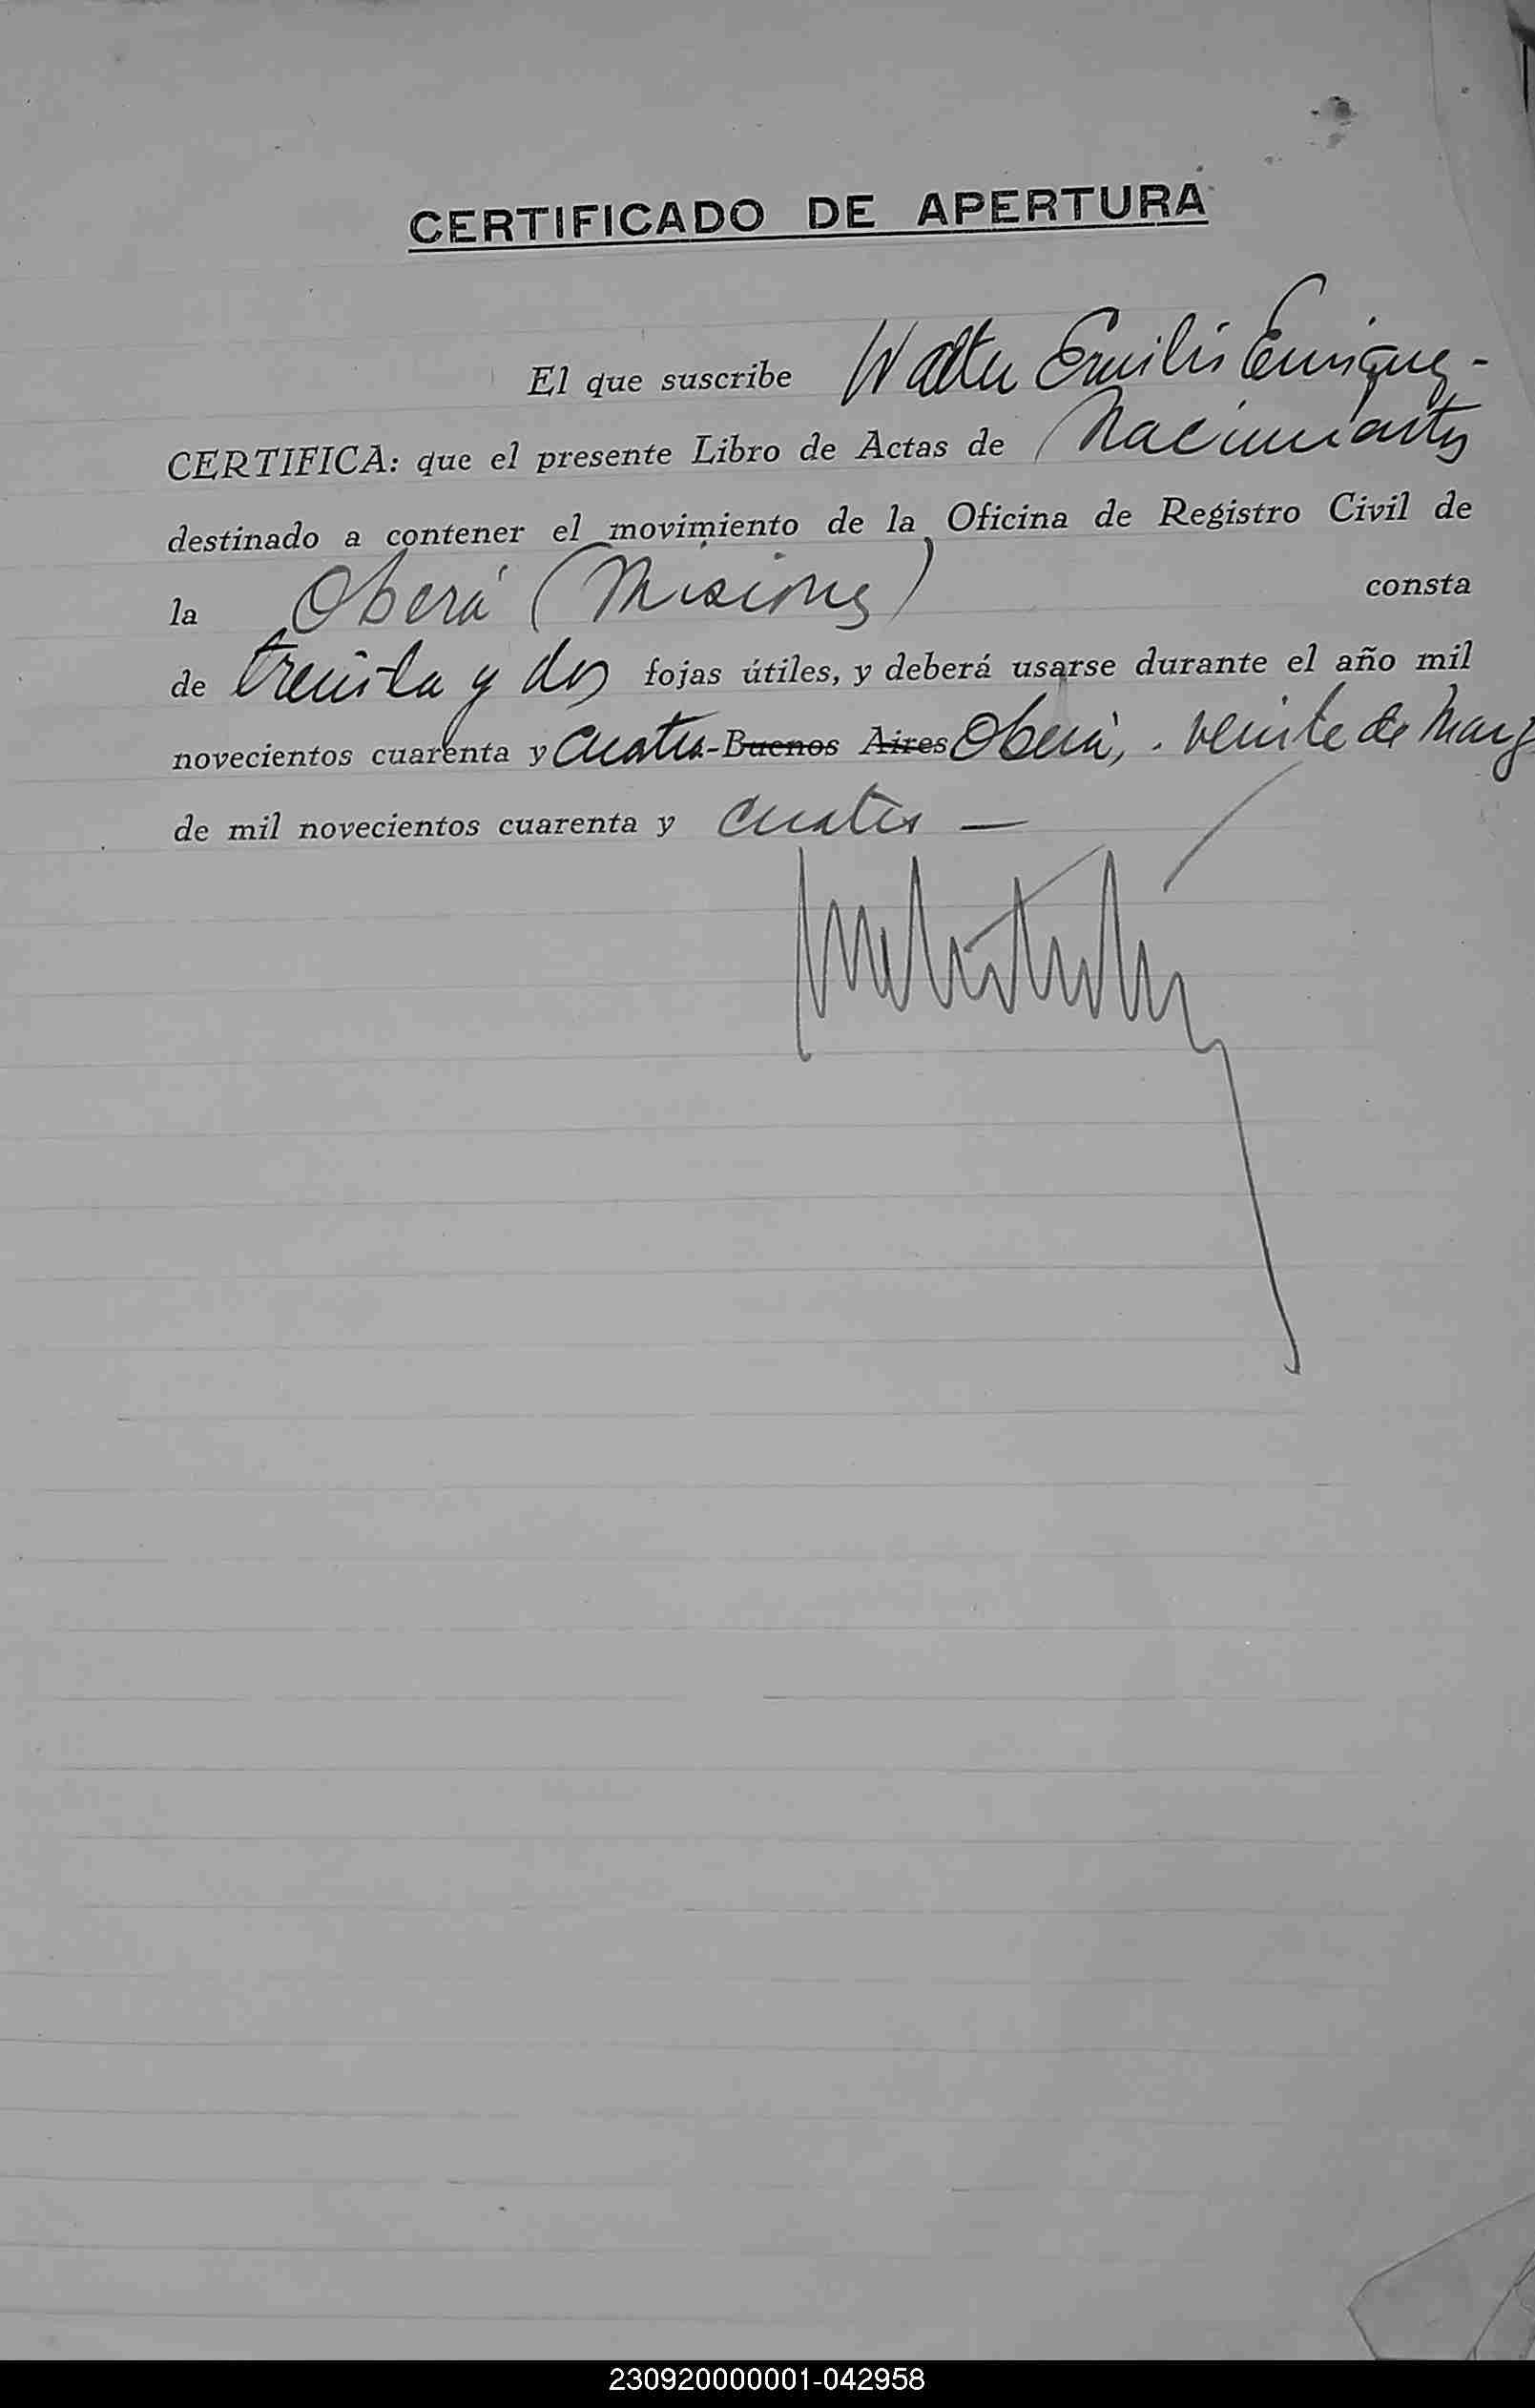 CERTIFICADO DE APERTURA
El que suscribe Walter Emilio Enrique -
CERTIFICA: que el presente Libro de Actas de Nacimientos
destinado a contener el movimiento de la Oficina de Registro Civil de
la Oberá (Misiones) consta
de treinta y dos fojas útiles, y deberá usarse durante el año mil
novecientos cuarenta y cuatro - Buenos Aires Oberá, veinte de Marzo
de mil novecientos cuarenta y cuatro —
230920000001-042958